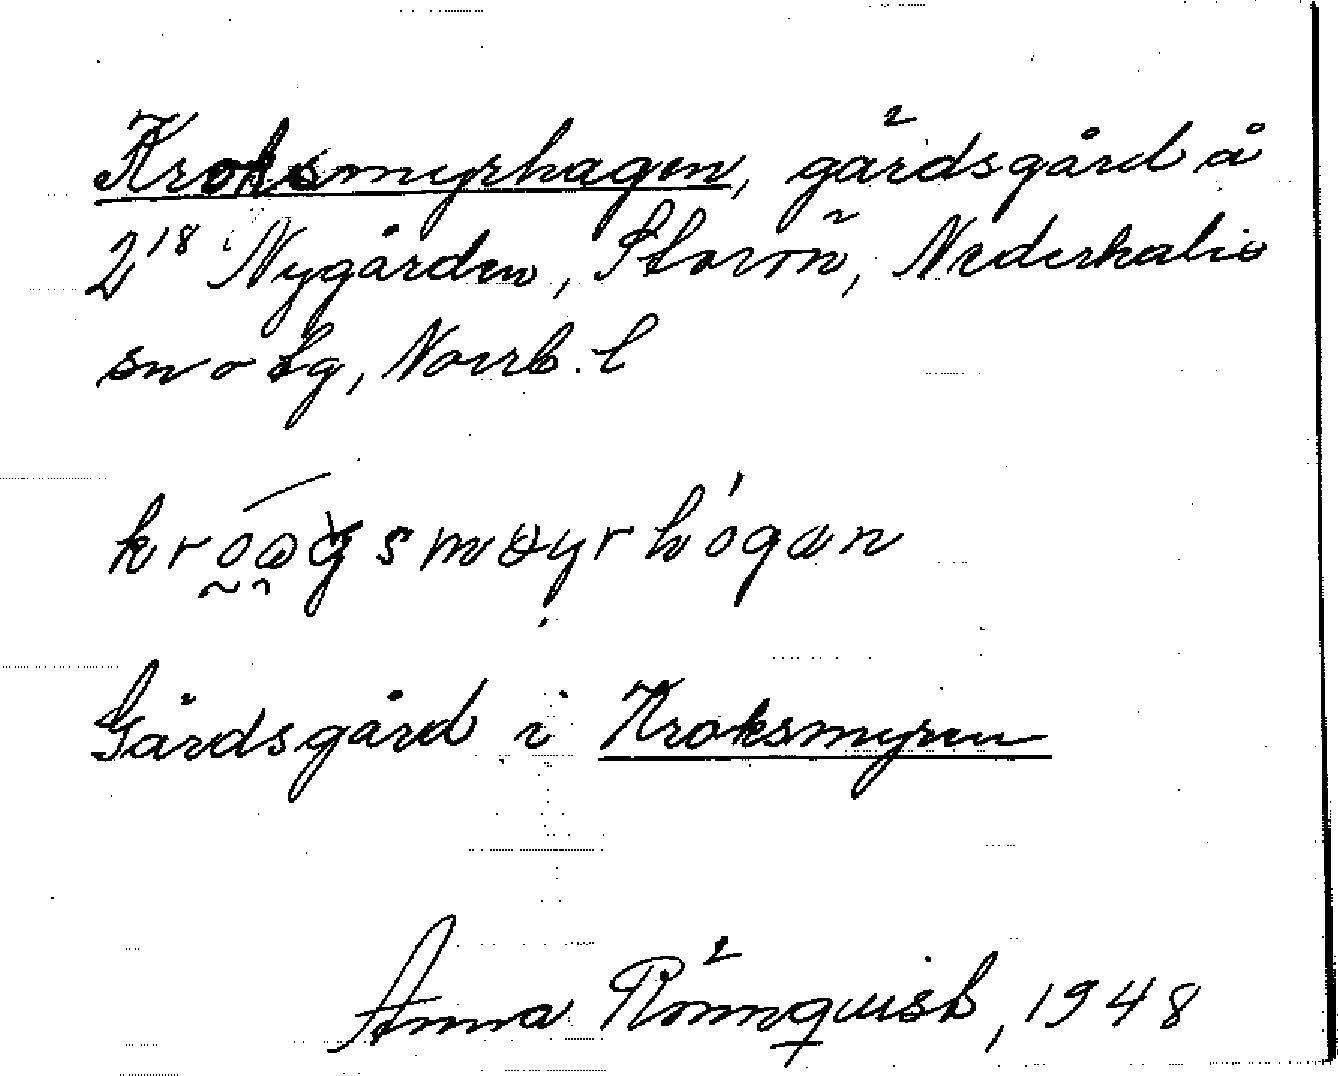 Kroksmyrhagen, gärdsgård å
2¹⁸ Nygården, Storön, Nederkalix
sn o tg, Norrb. l
Gärdsgård i Kroksmyren
Anna Rönnquist, 1948